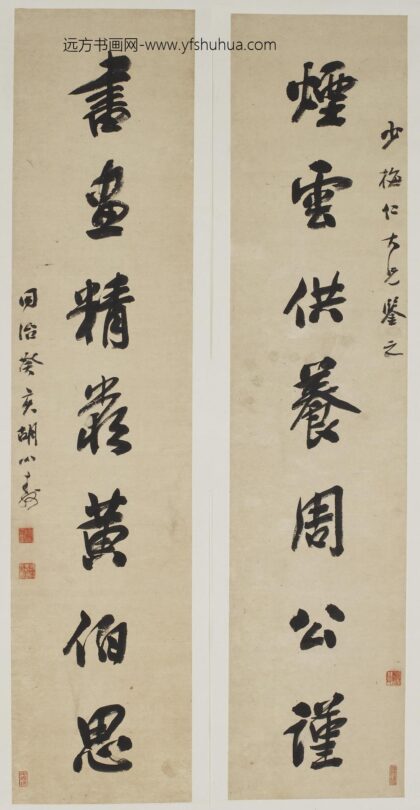 远方书画网-www.yfshuhua.com
少梅仁大兄鑒之
煙雲供養周公謹
書畫精嚴黃伯思
同治癸亥胡公壽